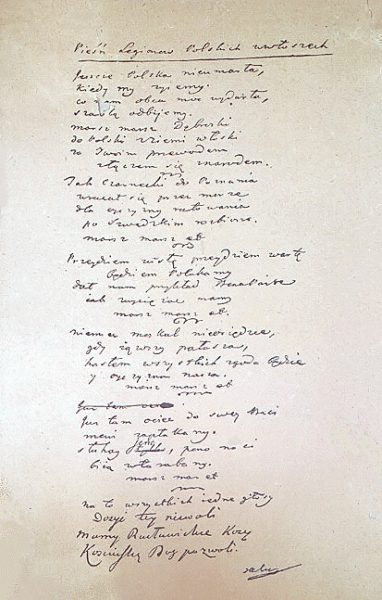 Pieśń Legionów Polskich we Włoszech
Jeszcze Polska nieumarła,
kiedy my żyjemy.
co nam obca moc wydarła,
szablą odbijemy.
marsz marsz Dąbroski
do Polski z ziemi włoski
za Twoim przewodem
złączem się z narodem.
Jak Czarnecki do Poznania
wracał się przez morze
dla ojczyzny ratowania
po Szwedzkim rozbiorze.
marsz marsz et
Przejdziem Wisłę przejdziem Wartę
będziem Polakamy
dał nam przykład Bonaparte
jak zwyciężać mamy
marsz marsz et.
niemiec moskal nieosiędzie,
gdy jąwszy pałasza,
hasłem wszystkich zgoda będzie
y ojczyzna nasza.
marsz marsz et
Już tam ociec
Już tam ociec do swey Basi
mówi zapłakany.
słuchay jeno, pono nasi
biią w tarabany.
marsz marsz et
na to wszystkich iedne głosy
Dosyć tey niewoli
Mamy Racławickie Kosy
Kosciuszkę Bóg pozwoli.